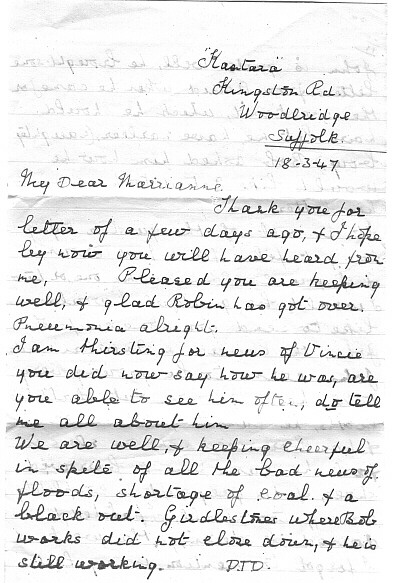 "Kantara"
Kingston Rd
Woodbridge
Suffolk
18-3-47
My Dear Marrianne
Thank you for
letter of a few days ago, & I hope
by now you will have heard from
me, Pleased you are keeping
well, & glad Robin has got over
Pneumonia alright.
I am thirsting for news of Vincie
you did now say how he was, are
you able to see him often, do tell
me all about him
We are well, & keeping cheerful
in spite of all the bad news of
floods, shortage of coal. & a
black out. Girdlestones where Bob
works did not close down, & he is
still working.